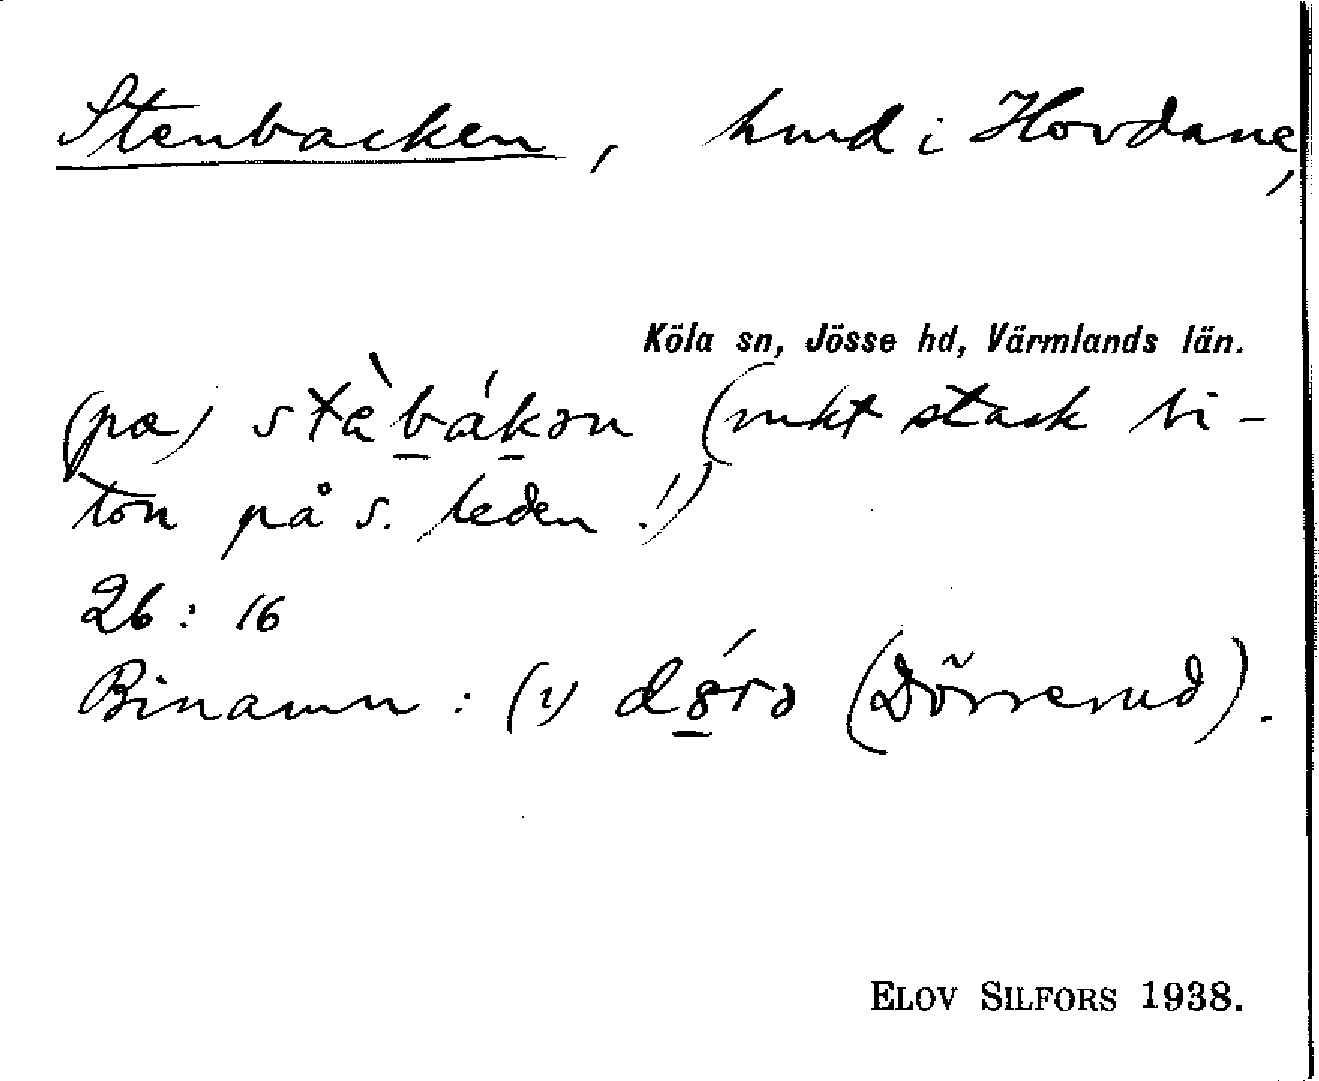 Stenbacken, hmd i Hovdane,
Köla sn, Jösse hd, Värmlands län.
(pɑ) stèbákən (mkt stark bi-
ton på s. leden!)
26: 16
Binamn: (i) dǿrə (Dörrerud).
ELOV SILFORS 1938.